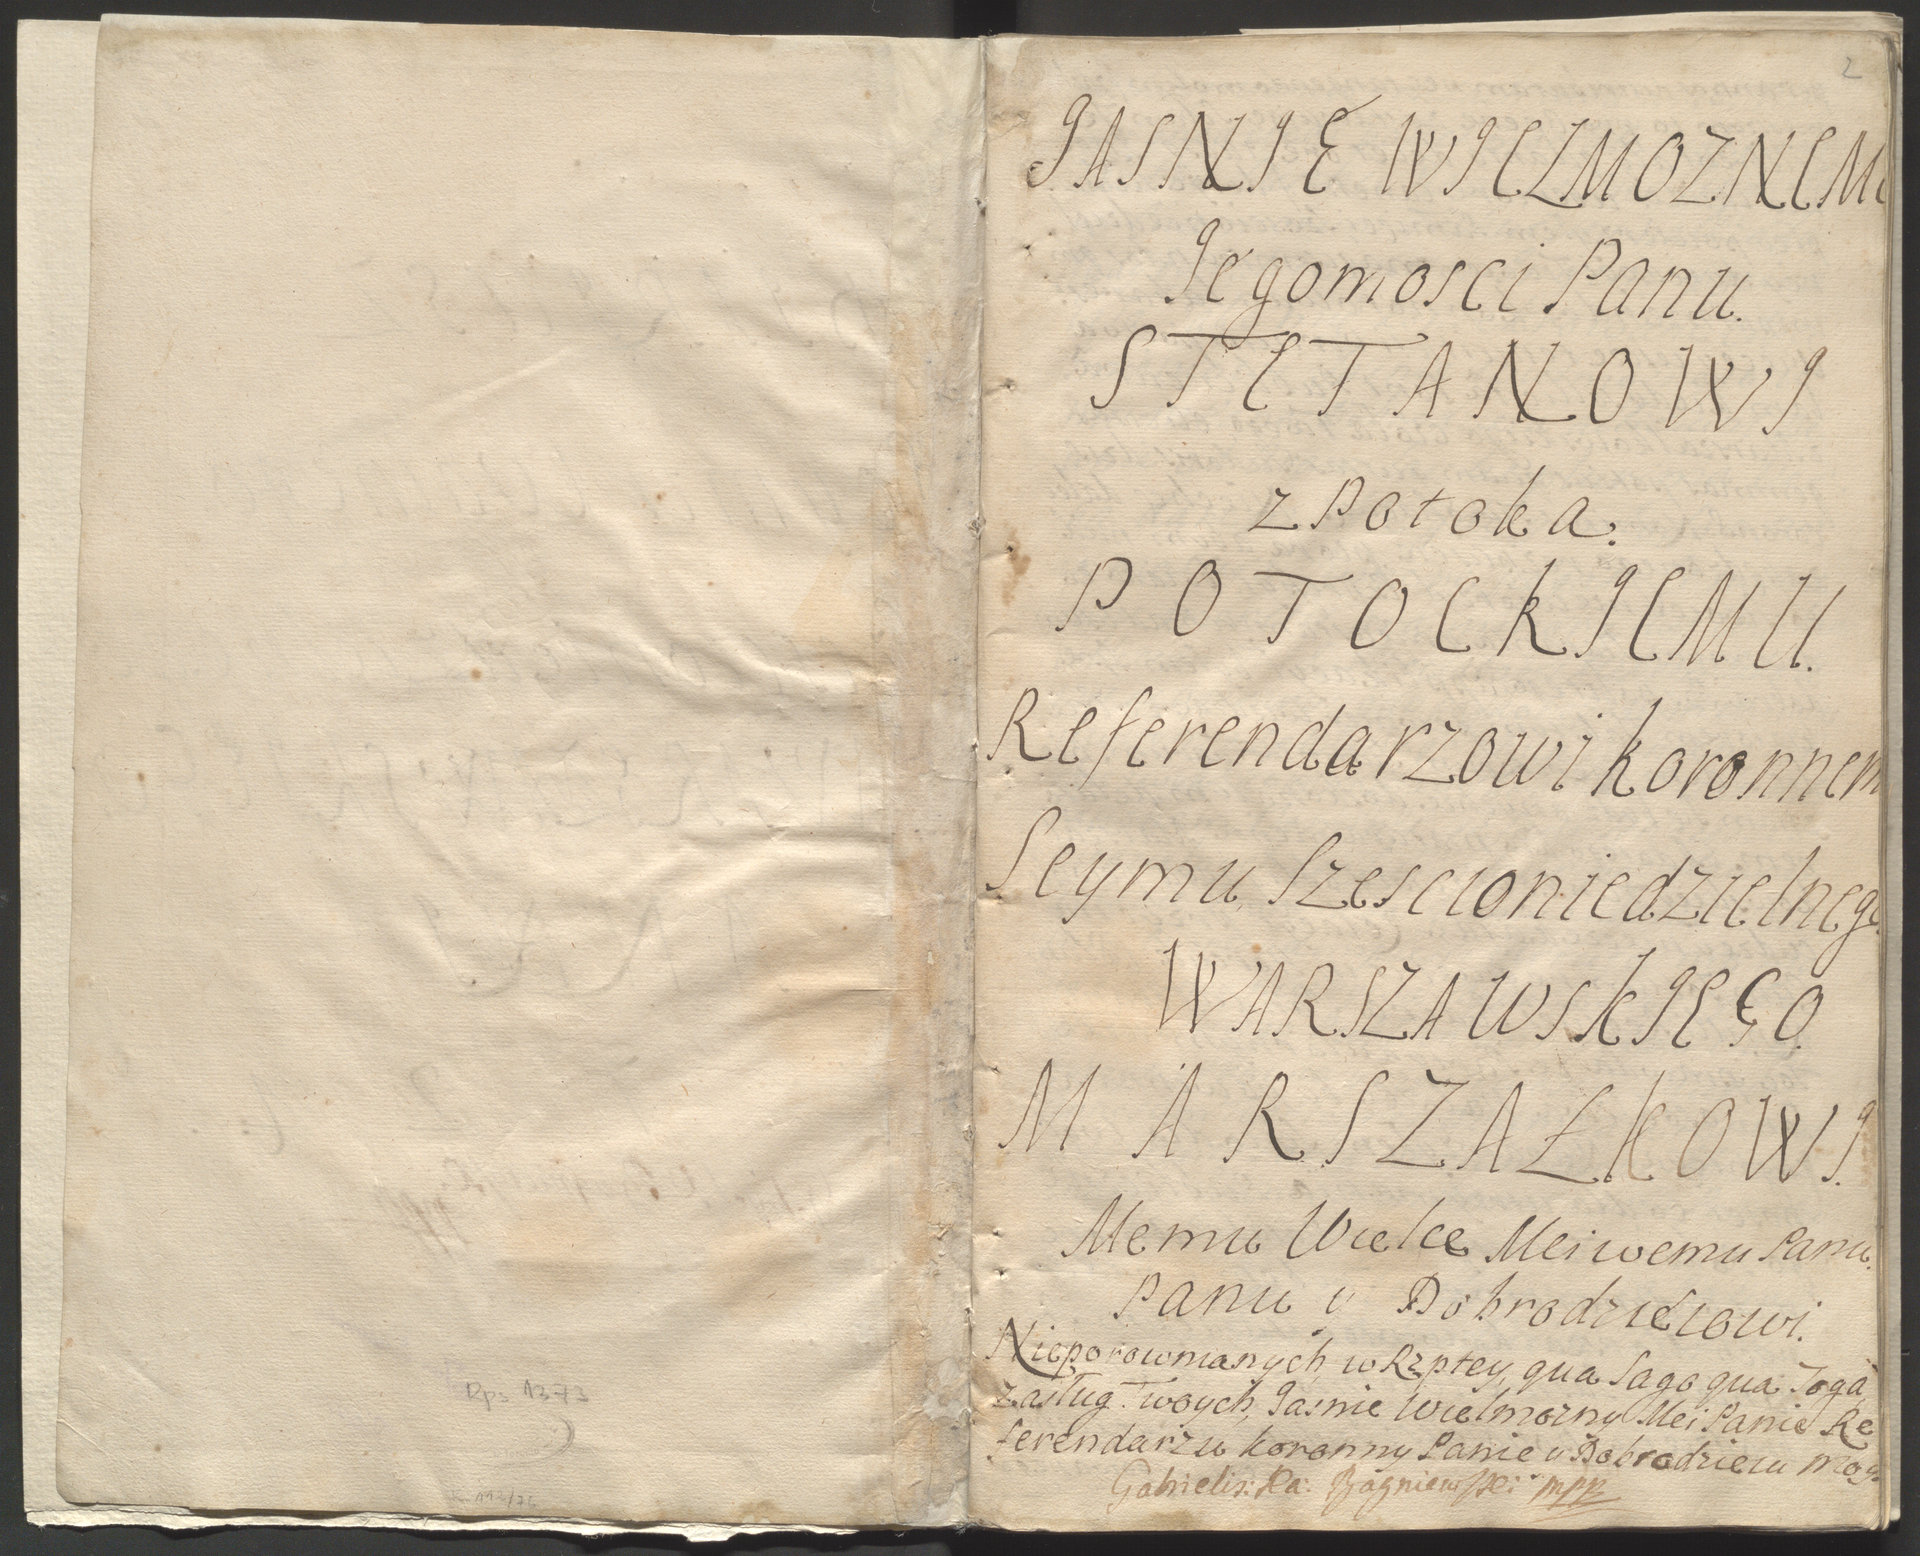 2
JASNIE WIELMOZNEMU
Jegomosci Panu.
STEFANOWI
z Potoka.
POTOCKIEMU.
Referendarzowi koronnem
Seymu Szescioniedzielnego
WARSZAWSKIEGO
MARSZAŁKOWI.
Memu Wielce Mciwemu Panu.
Panu y Dobrodzieiowi.
Nieporownanych, w Rzptey, qua Sago qua Toga
zasług Twoych, Jasnie Wielmozny Mci Panie Re
ferendarzu koronny Panie y Dobrodzieiu moy.
Gabrielis: mpp
Rps 1373